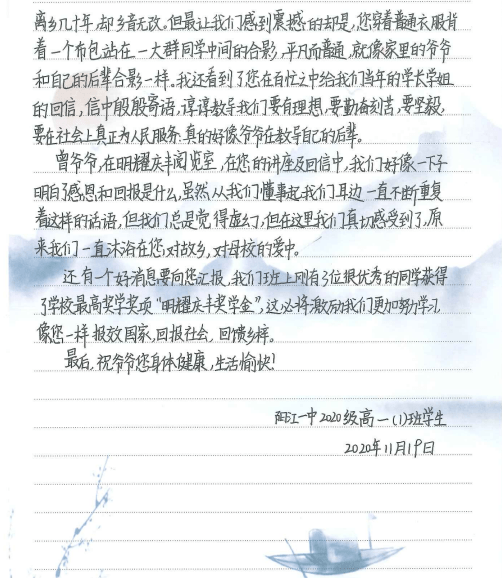 离乡几十年,却乡音无改。但最让我们感到震撼的却是,您穿着普通衣服背
着一个布包站在一大群同学中间的合影,平凡而普通,就像家里的爷爷
和自己的后辈合影一样。我还看到了您在百忙之中给我们当年的学长学姐
的回信,信中殷殷寄语,谆谆教导我们要有理想,要勤奋刻苦,要坚毅,
要在社会上真正为人民服务,真的好像爷爷在教导自己的后辈。
曾爷爷,在明耀庆丰阅览室,在您的讲座及回信中,我们好像一下子
明白了感恩和回报是什么,虽然从我们懂事起我们耳边一直不断重复
着这样的话语,但我们总是觉得虚幻,但在这里我们真切感受到了,原
来我们一直沐浴在您对故乡,对母校的爱中。
还有一个好消息要向您汇报,我们班上刚有3位很优秀的同学获得
了学校最高奖学奖项“明耀庆丰奖学金”,这必将激励我们更加努力学习
像您一样报效国家,回报社会,回馈乡梓。
最后,祝爷爷您身体健康,生活愉快!
阳江一中2020级高一(1)班学生
2020年11月19日